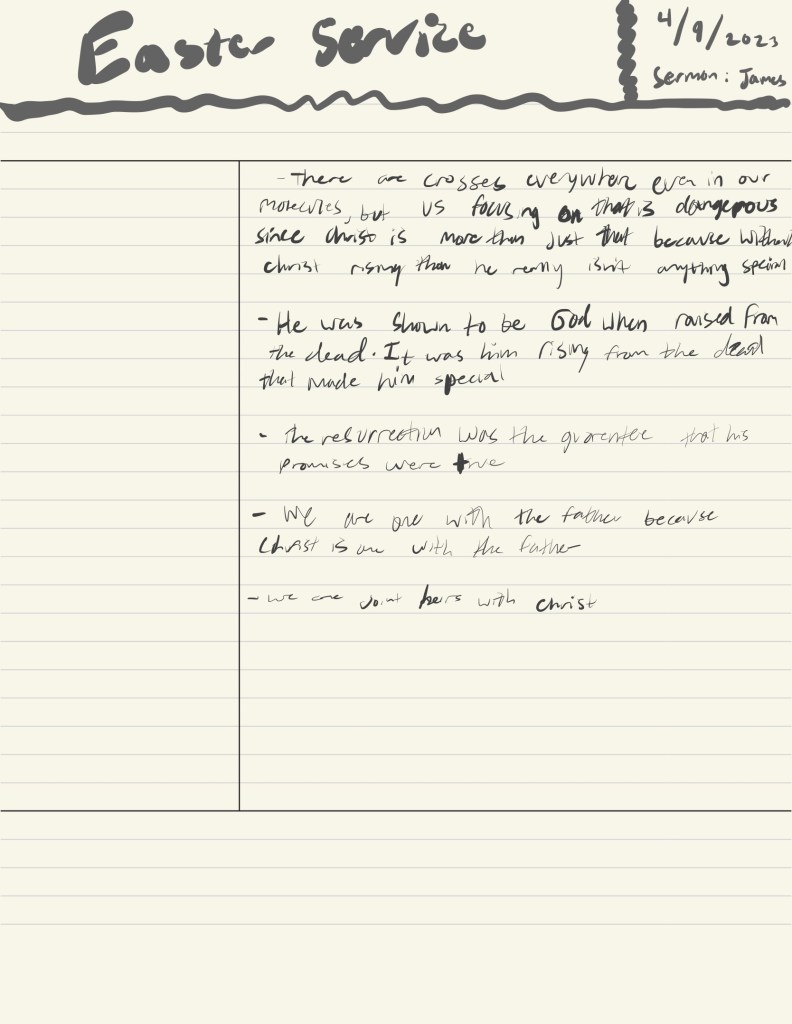 Easter Service
4/9/2023
Sermon: James
- There are crosses everywhere even in our
molecules, but us focusing on that is dangerous
since christ is more than just that because without
christ rising than he really isn't anything special
- He was shown to be God when raised from
the dead. It was him rising from the dead
that made him special
- the resurrection was the guarentee that his
promises were true
- We are one with the father because
Christ is one with the father
- we are joint heirs with christ